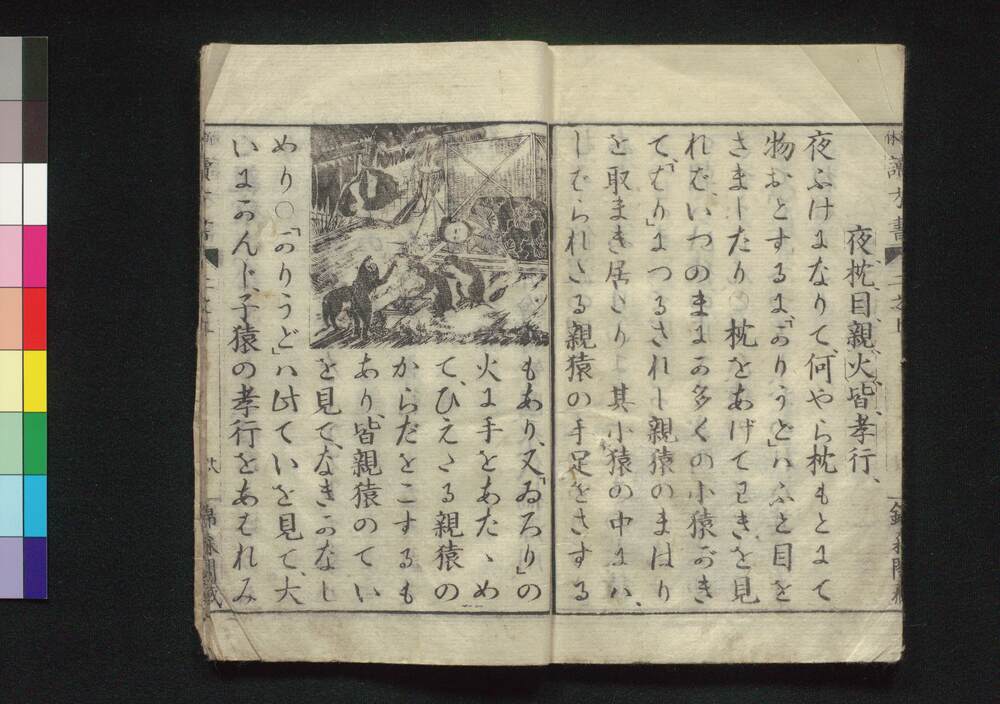 夜、枕、目、親、火、皆、孝行、
夜ふけになりて、何やら枕もとにて
物おとするに、「かりうど」ハふと目を
さましたり○枕をあげてわきを見
れば、いつのまにか多くの小猿がき
て、「はり」につるされし親猿のまはり
を取まき居たり○其小猿の中にハ、
しばられたる親猿の手足をさする
もあり、又「ゐろり」の
火に手をあたゝめ
て、ひえたる親猿の
からだをこするも
あり、皆親猿のてい
を見て、なきかなし
めり○「かりうど」ハ此ていを見て、大
いにかんじ、子猿の孝行をあはれみ